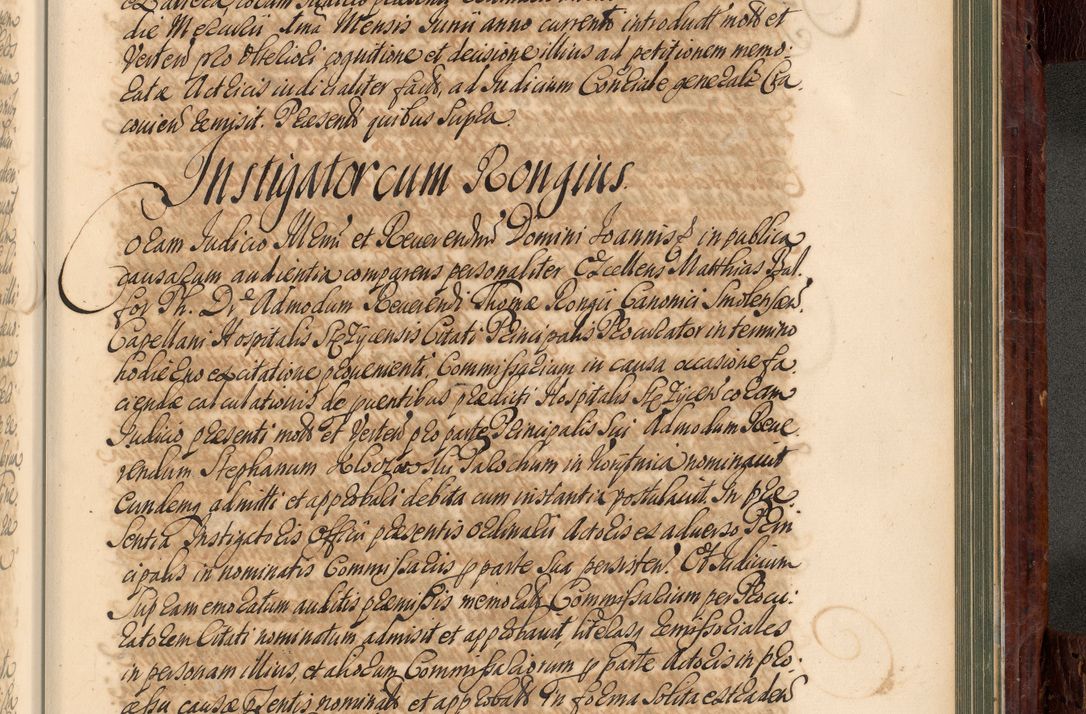 die Mercurii 1ma Mensis Junii anno currenti introduct mott et
Verten pro ulteriori cognitione et decisione illius ad petitionem memo:
ratæ Actricis iudicialiter factt, ad Judicium Conzrale generale Cra
covien remisit. Præsentt quibus supra.
Instigator cum Rongius.
Coram Judicio Illmi et Reverendmi Domini Joannis p in publica
causarum audientia comparens personaliter Excellens Matthias Bal
for Ph. Dr Admodum Reverendi Thomæ Rongii Canonici Smolenscen
Capellani Hospitalis Skrzycensis Citati Principalis Procurator in termino
hodierno ex citatione provenienti, Commissarium in causa occasione fa
ciendæ calculationis de proventibus prædicti Hospitalis Skrzycen coram
Judicio præsenti mott et Verten pro parte Principalis sui Admodum Reve
rendum Stephanum Parochum in nominavit
eundemq admitti et approbari debita cum instantia postulavit. In præ
sentia Instigatoris Officii præsentis ordinarii Actoris ex adverso Prin
cipalis in nominatis Commissariis p parte sua persisten. Et Judicium
Supramemoratum auditis præmissis memoratt Commissarium per Procu:
ratorem Citati nominatum admisit et approbavit, literasq remissoriales
in personam illius, et aliorum Commissariorum p parte Actoris in pro:
cessu causæ præsentis nominatt et approbatt in forma solita extraden